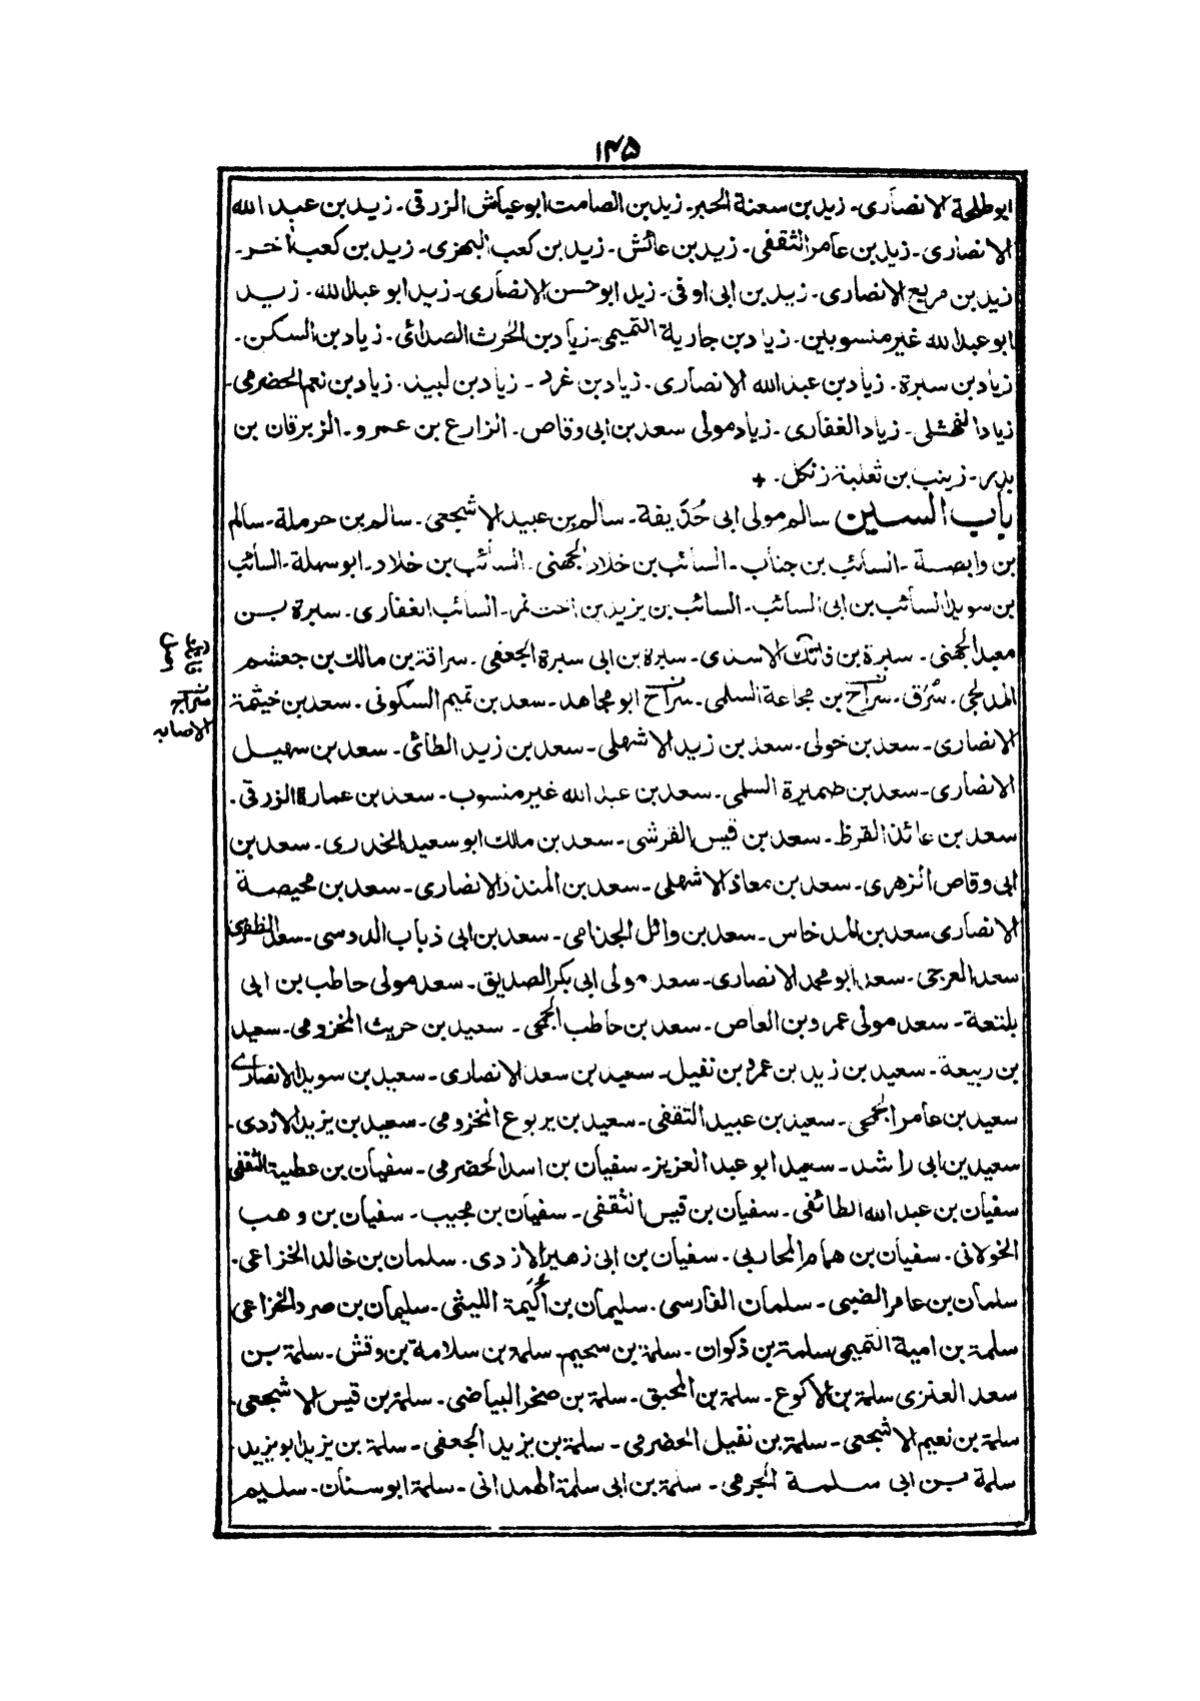 ۱۴۵
ابوطلحة الانصاری۔ زید بن سعنة الحبر۔ زید بن الصامت ابو عیاش الزرقی۔ زید بن عبد الله
الانصاری۔ زید بن عامر الثقفی۔ زید بن عائش۔ زید بن کعب البهزی۔ زید بن کعب اٰخر۔
زید بن مربع الانصاری۔ زید بن ابی اوفی۔ زید ابوحسن الانصاری۔ زید ابو عبد الله۔ زید
ابو عبد الله غیر منسوبین۔ زیاد بن جاریة التمیمی۔ زیاد بن الحرث الصدائی۔ زیاد بن السکن۔
زیاد بن سبرة۔ زیاد بن عبد الله الانصاری۔ زیاد بن غرد۔ زیاد بن لبید۔ زیاد بن نعیم الحضرمی۔
زیاد النهشلی۔ زیاد الغفاری۔ زیاد مولی سعد بن ابی وقاص۔ الزارع بن عمرو۔ الزبرقان بن
بدر۔ زینب بن ثعلبة زنکل۔ +
باب السین سالم مولی ابی حُذَیفة۔ سالم بن عبید الاشجعی۔ سالم بن حرملة۔ سالم
بن وابصة۔ السائب بن جناب۔ السائب بن خلاد الجهنی۔ السائب بن خلاد۔ ابو سهلة۔ السائب
بن سوید السائب بن ابی السائب۔ السائب بن یزید بن اخت نمر۔ السائب الغفاری۔ سبرة بن
معبد الجهنی۔ سبرة بن فاتک الاسدی۔ سبرة بن ابی سبرة الجعفی۔ سراقة بن مالک بن جعشم
المدلجی۔ سُرَق۔ سراج بن مجاعة السلمی۔ سراج ابو مجاهد۔ سعد بن تمیم السکونی۔ سعد بن خیثمة
سراج
الاصابه
الانصاری۔ سعد بن خولی۔ سعد بن زید الاشهلی۔ سعد بن زید الطائی۔ سعد بن سهیل
الانصاری۔ سعد بن ضمیرة السلمی۔ سعد بن عبد الله غیر منسوب۔ سعد بن عمارة الزرقی۔
سعد بن عائذ القرظ۔ سعد بن قیس القرشی۔ سعد بن مالک ابو سعید الخدری۔ سعد بن
ابی وقاص الزهری۔ سعد بن معاذ الاشهلی۔ سعد بن المنذر الانصاری۔ سعد بن محیصة
الانصاری سعد بن المدخاس۔ سعد بن وائل الجذامی۔ سعد بن ابی ذباب الدوسی۔ سعد الظفری
سعد العرجی۔ سعد ابو محمد الانصاری۔ سعد مولی ابی بکر الصدیق۔ سعد مولی حاطب بن ابی
بلتعة۔ سعد مولی عمرو بن العاص۔ سعد بن حاطب الجمحی۔ سعید بن حریث المخزومی۔ سعید
بن ربیعة۔ سعید بن زید بن عمرو بن نفیل۔ سعید بن سعد الانصاری۔ سعید بن سوید الانصاری
سعید بن عامر الجمحی۔ سعید بن عبید الثقفی۔ سعید بن یربوع المخزومی۔ سعید بن یزید الازدی۔
سعید بن ابی راشد۔ سعید ابو عبد العزیز۔ سفیان بن اسد الحضرمی۔ سفیان بن عطیة الثقفی
سفیان بن عبد الله الطائفی۔ سفیان بن قیس الثقفی۔ سفیان بن مجیب۔ سفیان بن وهب
الخولانی۔ سفیان بن همام المحاربی۔ سفیان بن ابی زهیر الازدی۔ سلمان بن خالد الخزاعی۔
سلمان بن عامر الضبی۔ سلمان الفارسی۔ سلیمان بن اُکَیمة اللیثی۔ سلیمان بن صرد الخزاعی
سلمة بن امیة التمیمی سلمة بن ذکوان۔ سلمة بن سحیم۔ سلمة بن سلامة بن وقش۔ سلمة بن
سعد العنزی سلمة بن الاکوع۔ سلمة بن المحبق۔ سلمة بن صخر البیاضی۔ سلمة بن قیس الاشجعی۔
سلمة بن نعیم الاشجعی۔ سلمة بن نفیل الحضرمی۔ سلمة بن یزید الجعفی۔ سلمة بن یزید ابو یزید
سلمة بن ابی سلمة الجرمی۔ سلمة بن ابی سلمة الهمدانی۔ سلمة ابو سنان۔ سلیم